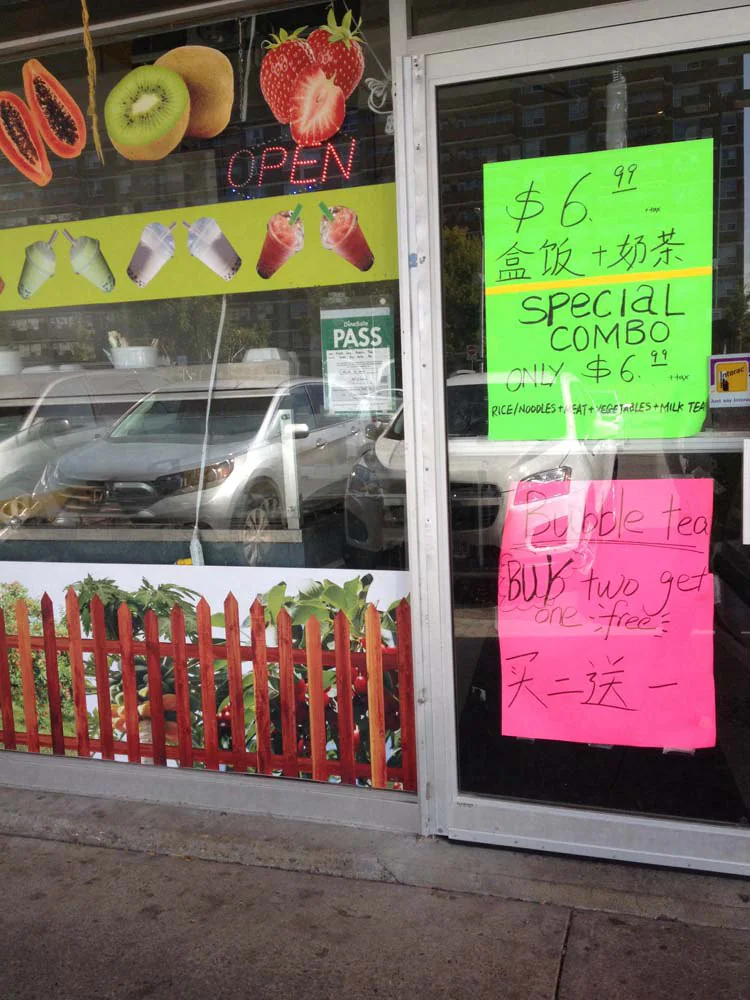 OPEN
DineSafe
PASS
$6.99 +tax
盒饭+奶茶
SPECIAL
COMBO
ONLY $6.99 +tax
RICE/NOODLES+MEAT+VEGETABLES+MILK TEA
Interac
Bubble tea
BUY two get
one free
买二送一